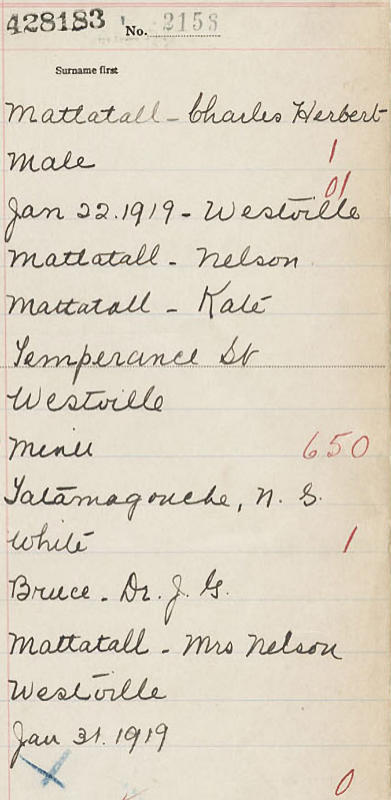 428183 No. 2153
Surname first
Mattatall - Charles Herbert
Male 1
01
Jan 22.1919 - Westville
Mattatall - Nelson
Mattatall - Kate
Temperance St
Westville
Miner 650
Tatamagouche, N. S.
White 1
Bruce - Dr. J. G.
Mattatall - Mrs Nelson
Westville
Jan 31.1919
0